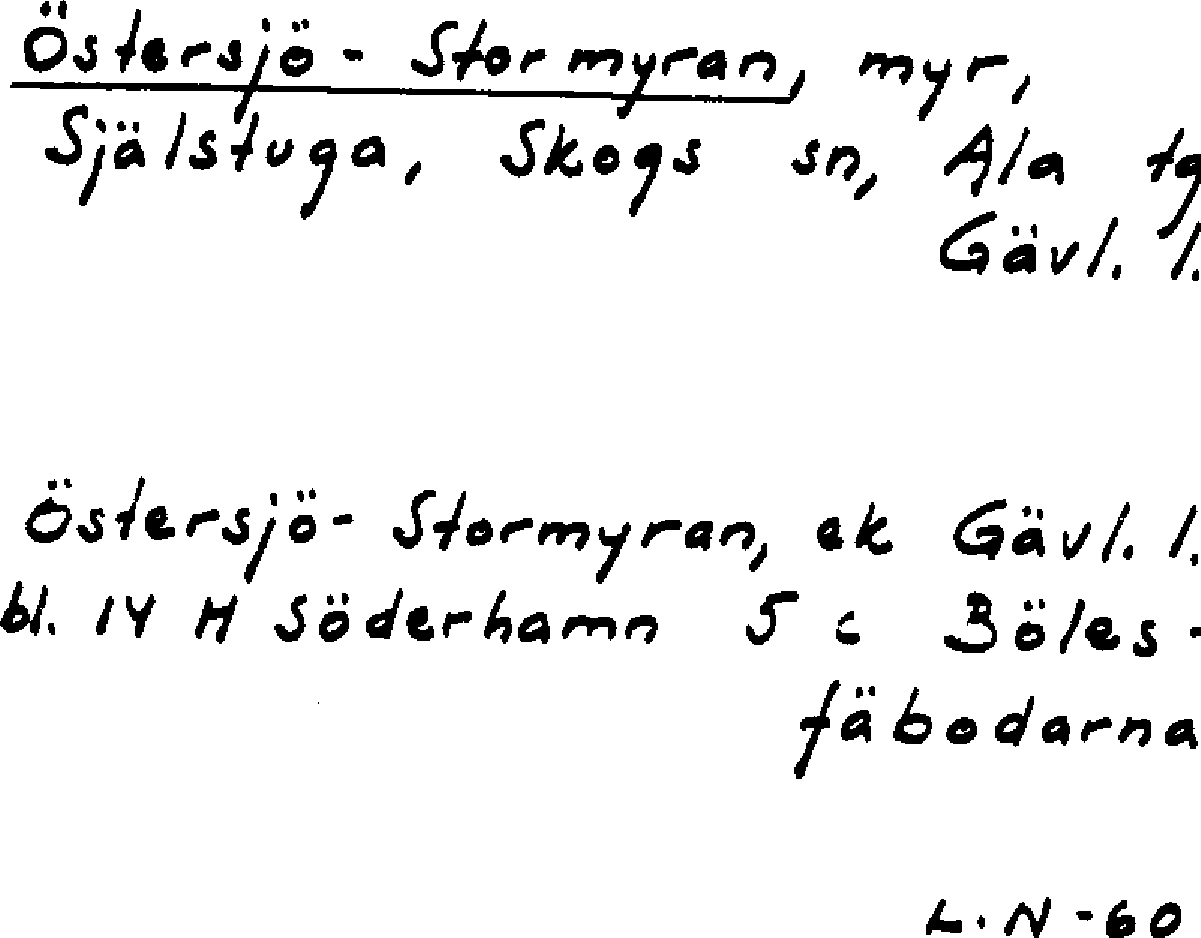 Östersjö-Stormyran, myr,
Själstuga, Skogs sn, Ala tg
Gävl. l.
Östersjö-Stormyran, ek Gävl. l.
bl. 14 H Söderhamn 5 c Böles-
fäbodarna
L.N-60